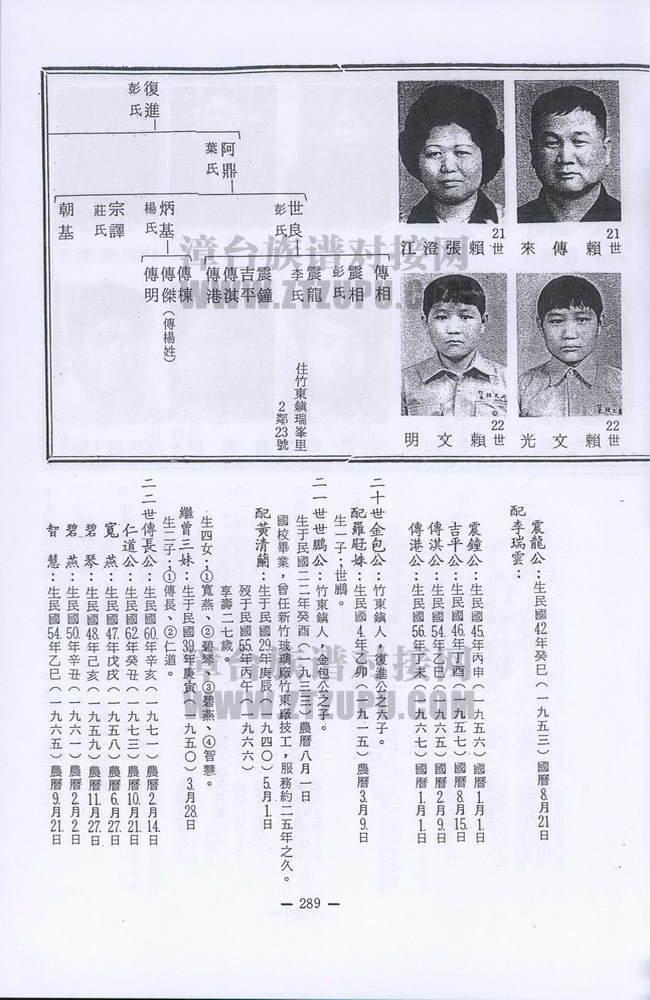 21世 賴傳來
21世 賴張澄江
22世 賴文光
22世 賴文明
復進
彭氏
阿鼎
葉氏
世良
彭氏
炳基
楊氏
宗譯
莊氏
朝基
傳相
震相
彭氏
震龍
李氏
震鐘
吉平
傳淇
傳港
傳棟
傳傑(傳楊姓)
傳明
住竹東鎮瑞峯里
2鄰23號
震龍公:生民國42年癸巳(一九五三)國曆8月21日
配李瑞雲:
震鐘公:生民國45年丙申(一九五六)國曆1月1日
吉平公:生民國46年丁酉(一九五七)國曆8月15日
傳淇公:生民國54年乙巳(一九六五)國曆2月9日
傳港公:生民國56年丁未(一九六七)國曆1月1日
二十世金包公:竹東鎮人,復進公之六子。
配羅旺妹:生民國4年乙卯(一九一五)農曆3月9日
生一子;世鵬。
二一世世鵬公:竹東鎮人,金包公之子。
生于民國二二年癸酉(一九三三)農曆八月一日
國校畢業,曾任新竹玻璃廠竹東廠技工,服務約二五年之久。
配黃清蘭:生于民國29年庚辰(一九四〇)5月1日
歿于民國55年丙午(一九六六)
享壽二七歲。
生四女;①寬燕、②碧琴、③碧燕、④智慧。
繼曾三妹:生于民國39年庚寅(一九五〇)3月28日
生二子;①傳長、②仁道。
二二世傳長公:生民國60年辛亥(一九七一)農曆2月14日
仁道公:生民國62年癸丑(一九七三)農曆10月21日
寬燕:生民國47年戊戌(一九五八)農曆6月27日
碧琴:生民國48年己亥(一九五九)農曆11月27日
碧燕:生民國50年辛丑(一九六一)農曆2月2日
智慧:生民國54年乙巳(一九六五)農曆9月21日
— 289 —
漳台族谱对接网
WWW.ZTZUPU.COM
漳台族谱对接网
WWW.ZTZUPU.COM